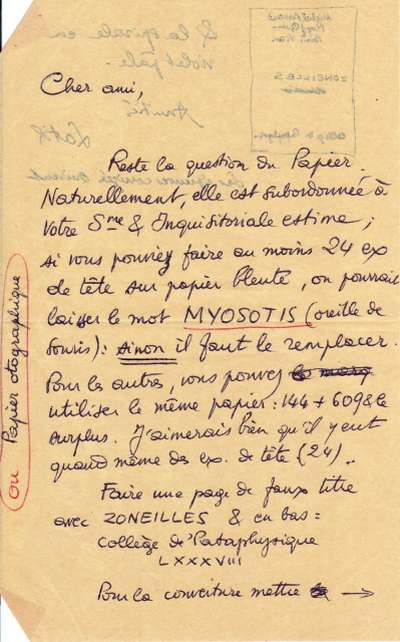 Cher ami,
Reste la question du Papier.
Naturellement, elle est subordonnée à
votre Sme & Inquisitoriale estime ;
si vous pouviez faire au moins 24 ex
de tête sur papier bleuté, on pourrait
laisser le mot MYOSOTIS (oreille de
souris) : sinon il faut le remplacer.
Pour les autres, vous pouvez
utiliser le même papier : 144 + 609 & le
surplus. J'aimerais bien qu'il y eut
quand même des ex. de tête (24) ..
Faire une page de faux titre
avec ZONEILLES & en bas =
Collège de 'Pataphysique
LXXXVIII
Pour la couverture mettre →
ou Papier otographique
& la spirale en
violet pâle.
Amitié
ZONEILLES